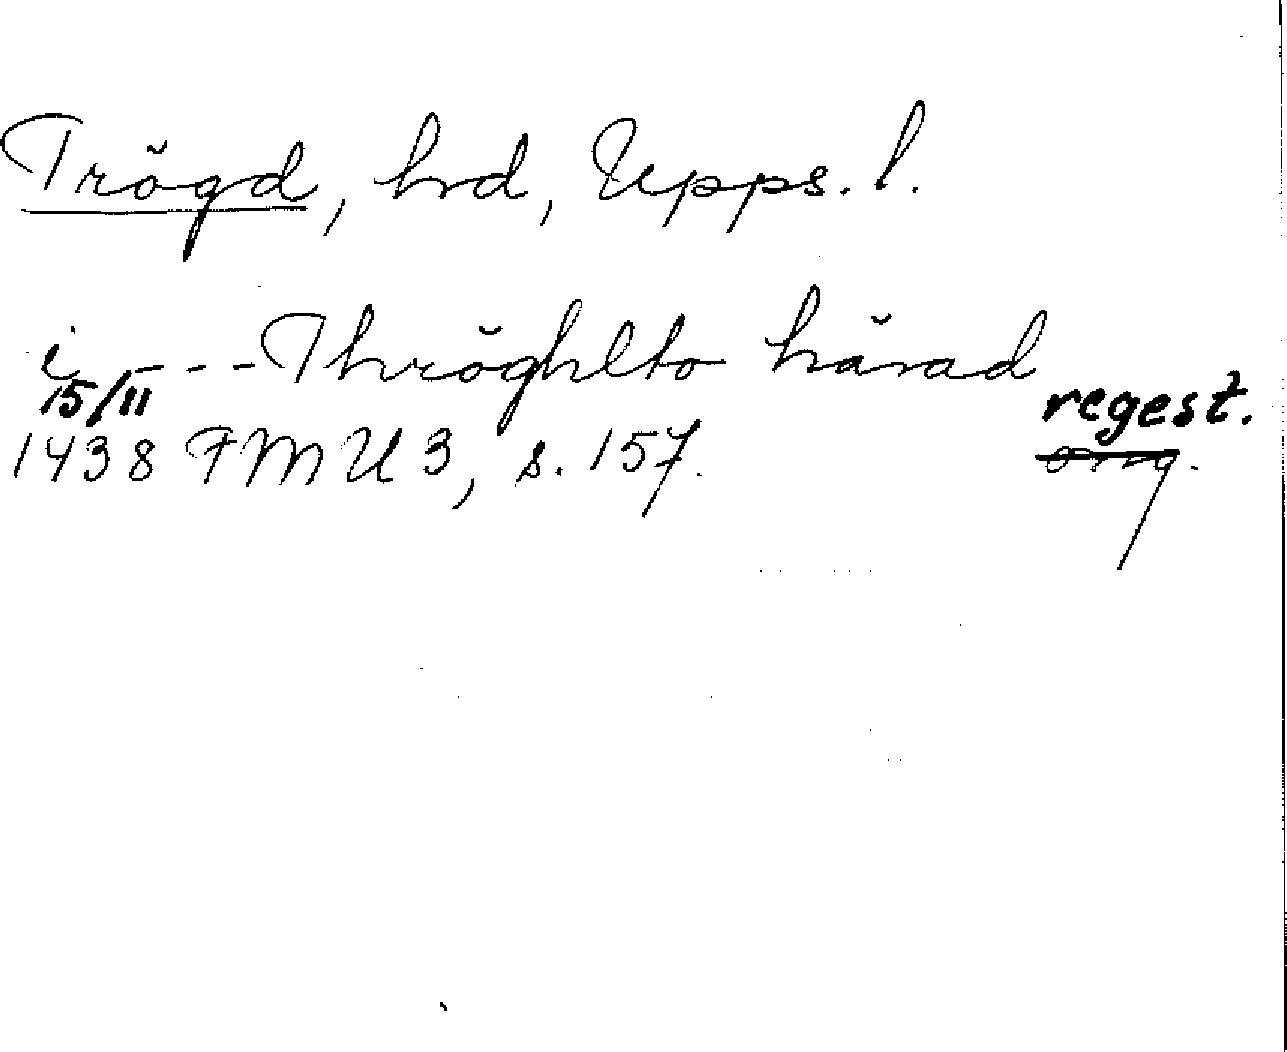 Trögd, hrd, Upps. l.
i - - - Thröghlto härad
15/11 regest.
1438 FMU 3, s. 157. orig.